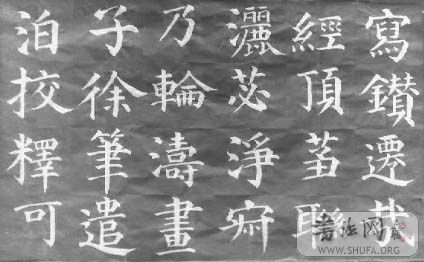 寫鑚遷哉
經頂聯
灑苾淨
乃輪濤畫
子徐筆遣
泊挍釋可
书法网
WWW.SHUFA.ORG